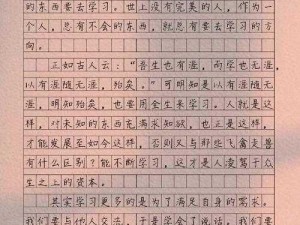 的东西要去学习。世上没有完美的人，作为一
个人，总有不会的东西，就总有要去学习的方
向。
正如古人云：“吾生也有涯，而学也无涯，
以有涯随无涯，殆矣。”可明知是以有涯随无
涯，明知殆矣，也要用会生来学习。人就是这
样，对未知的东西充满求知欲，也正是这样，
才能发展至如今这样。否则又与那些飞禽走兽
有什么区别？能不断学习，这才是人凌驾于众
生之上的资本。
其实学习更多的是为了满足自身的需求。
我们要与他人交流，于是学会了说话。我们要